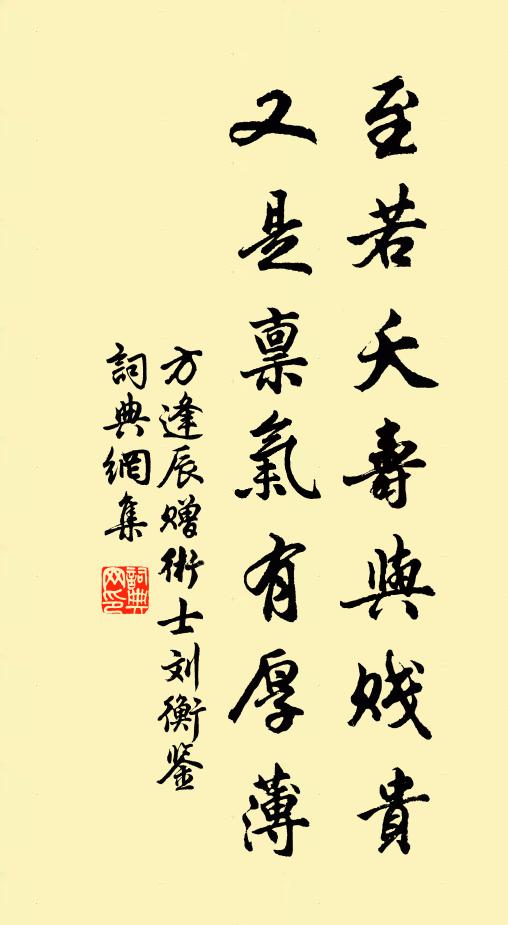 至若夭壽與賤貴
又是禀氣有厚薄
方逢辰赠術士刘衡鉴
詞典網集
詞典网印